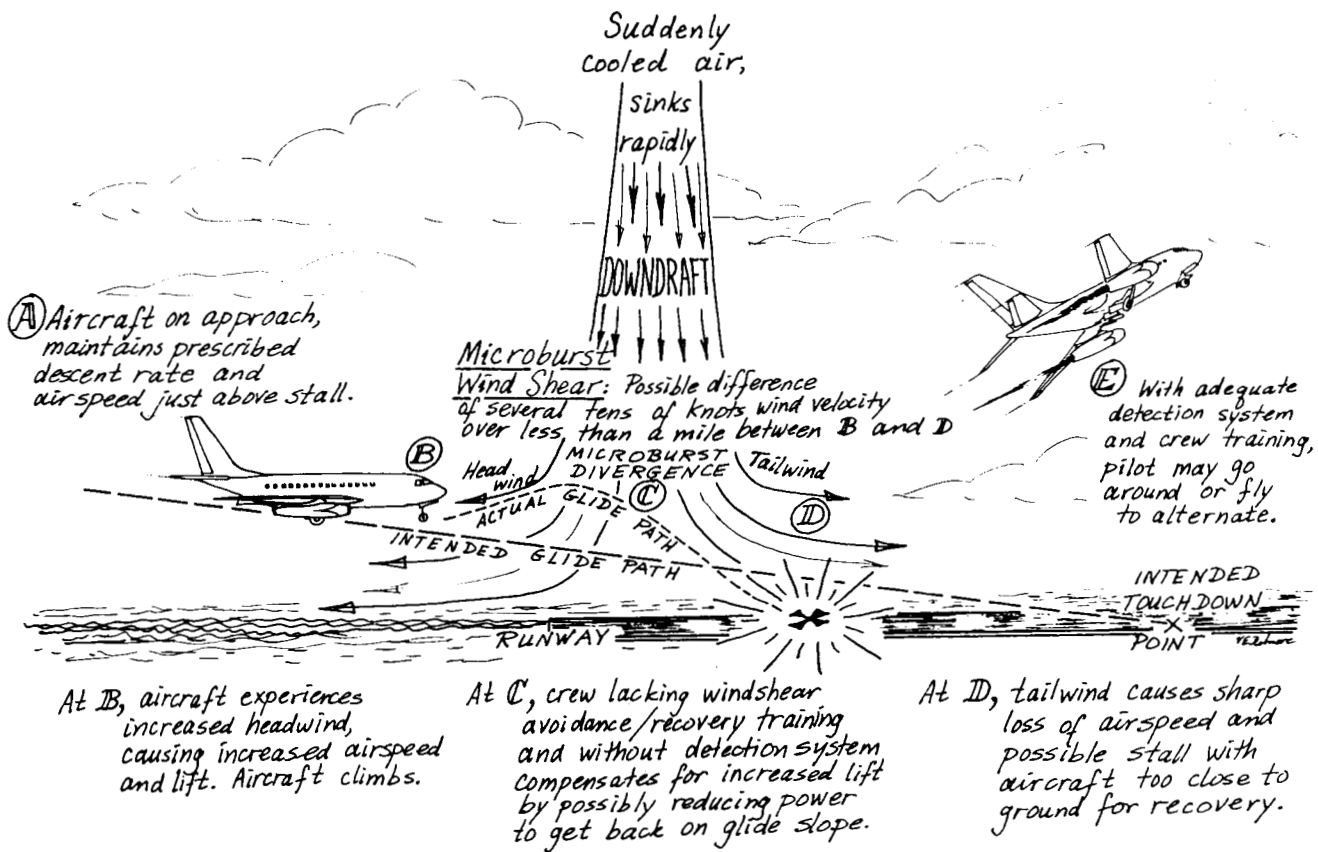 Suddenly
cooled air,
sinks
rapidly
DOWNDRAFT
A Aircraft on approach,
maintains prescribed
descent rate and
airspeed just above stall.
Microburst
Wind Shear: Possible difference
of several tens of knots wind velocity
over less than a mile between B and D
B
Head
wind
MICROBURST
DIVERGENCE
Tailwind
C
D
E With adequate
detection system
and crew training,
pilot may go
around or fly
to alternate.
ACTUAL GLIDE PATH
INTENDED GLIDE PATH
INTENDED
TOUCHDOWN
POINT
RUNWAY
At B, aircraft experiences
increased headwind,
causing increased airspeed
and lift. Aircraft climbs.
At C, crew lacking windshear
avoidance/recovery training
and without detection system
compensates for increased lift
by possibly reducing power
to get back on glide slope.
At D, tailwind causes sharp
loss of airspeed and
possible stall with
aircraft too close to
ground for recovery.